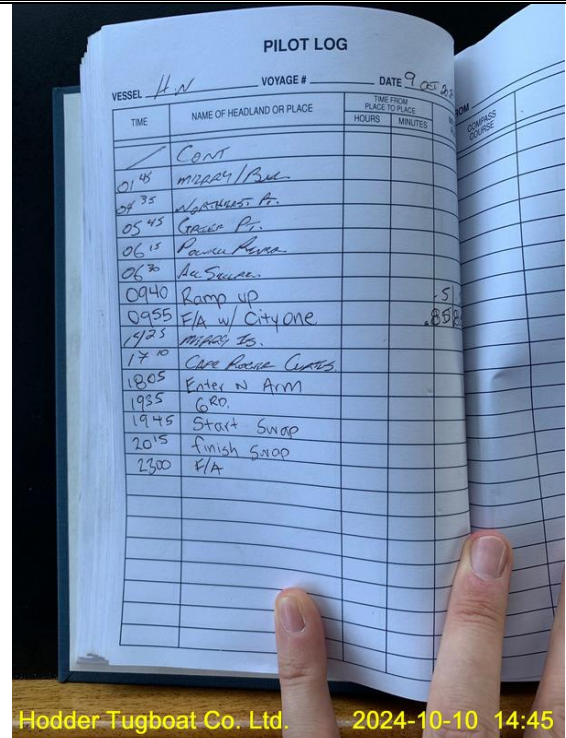 PILOT LOG
VESSEL H.N VOYAGE # DATE 9 OCT
TIME NAME OF HEADLAND OR PLACE TIME FROM PLACE TO PLACE HOURS MINUTES
COMPASS COURSE
CONT
01 45 MERRY /
04 35 NORTHEAST PT.
05 45 GRIEF PT.
06 15 POWELL RIVER
06 30 ALL SECURE
0940 Ramp up
0955 F/A w/ City one
1425 MERRY IS.
17 10 CAPE ROGER CURTIS
1805 Enter N Arm
1935 GRD.
1945 Start Swap
2015 finish Swap
2300 F/A
Hodder Tugboat Co. Ltd. 2024-10-10 14:45